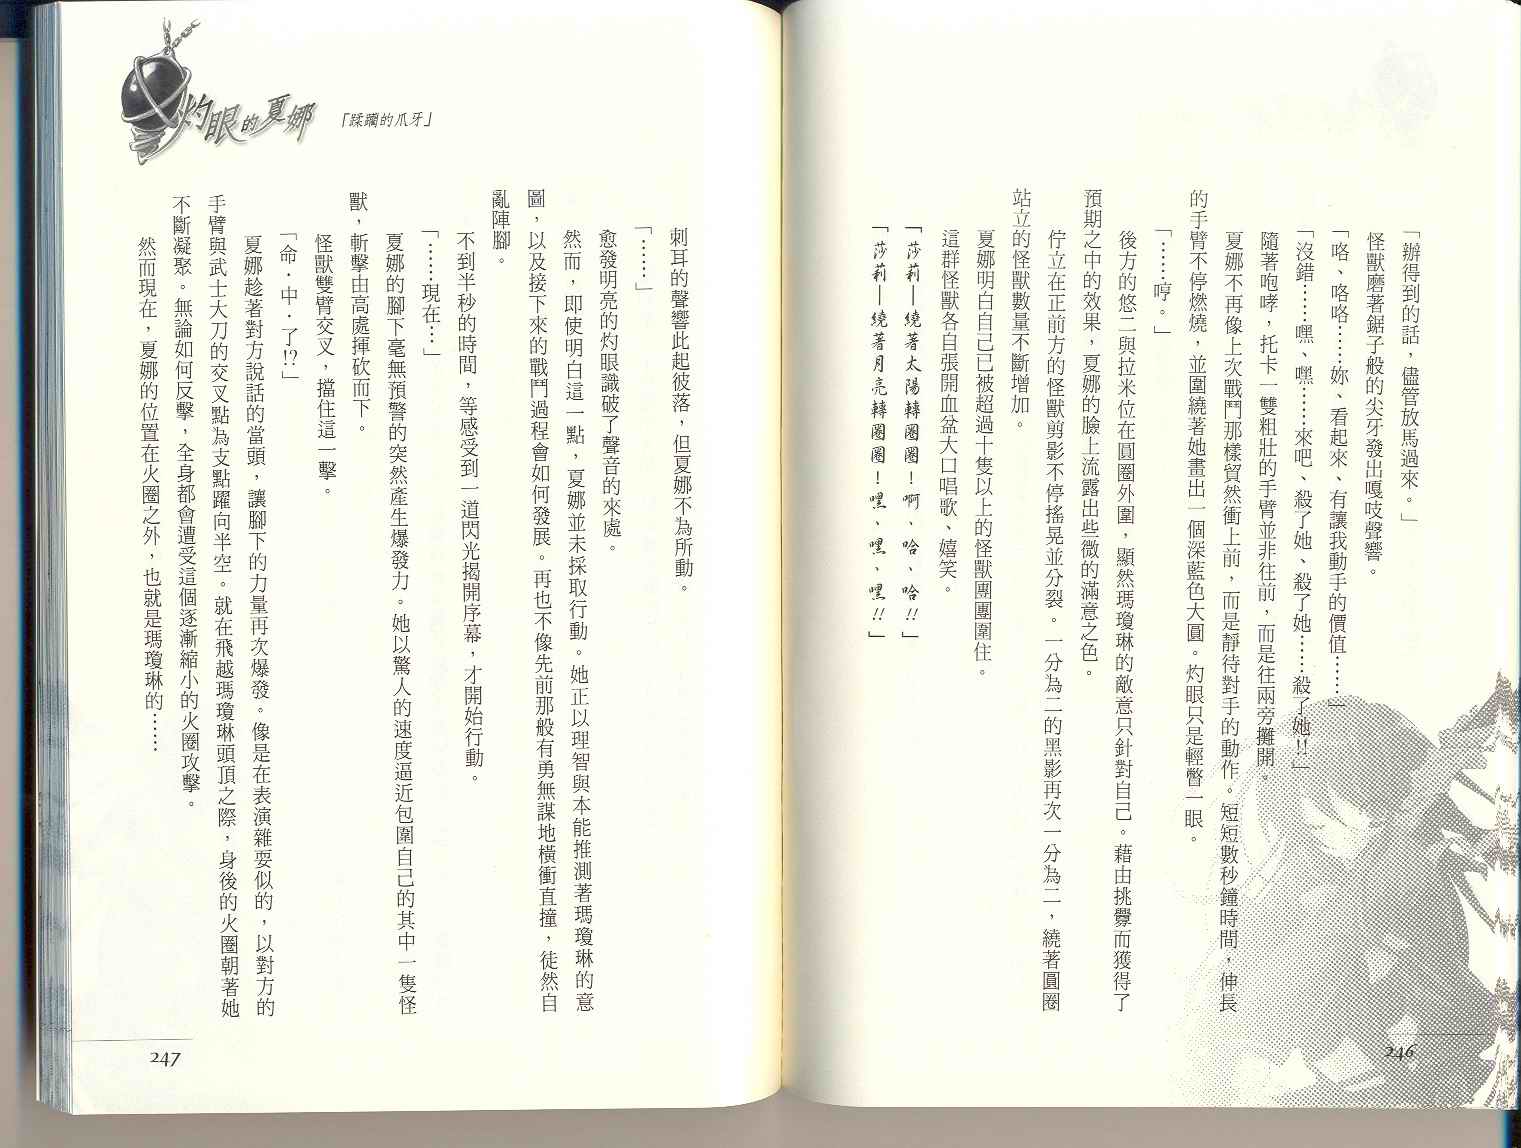 「辦得到的話，儘管放馬過來。」
怪獸磨著鋸子般的尖牙發出嘎吱聲響。
「咯、咯咯……妳、看起來、有讓我動手的價值……」
「沒錯……嘿、嘿……來吧、殺了她、殺了她……殺了她!!」
隨著咆哮，托卡一雙粗壯的手臂並非往前，而是往兩旁攤開。
夏娜不再像上次戰鬥那樣貿然衝上前，而是靜待對手的動作。短短數秒鐘時間，伸長
的手臂不停燃燒，並圍繞著她畫出一個深藍色大圓。灼眼只是輕瞥一眼。
「……哼。」
後方的悠二與拉米位在圓圈外圍，顯然瑪瓊琳的敵意只針對自己。藉由挑釁而獲得了
預期之中的效果，夏娜的臉上流露出些微的滿意之色。
佇立在正前方的怪獸剪影不停搖晃並分裂。一分為二的黑影再次一分為二，繞著圓圈
站立的怪獸數量不斷增加。
夏娜明白自己已被超過十隻以上的怪獸團團圍住。
這群怪獸各自張開血盆大口唱歌、嬉笑。
「莎莉—繞著太陽轉圈圈！啊、哈、哈!!」
「莎莉—繞著月亮轉圈圈！嘿、嘿、嘿!!」
246
灼眼的夏娜
「蹂躪的爪牙」
刺耳的聲響此起彼落，但夏娜不為所動。
「……」
愈發明亮的灼眼識破了聲音的來處。
然而，即使明白這一點，夏娜並未採取行動。她正以理智與本能推測著瑪瓊琳的意
圖，以及接下來的戰鬥過程會如何發展。再也不像先前那般有勇無謀地橫衝直撞，徒然自
亂陣腳。
不到半秒的時間，等感受到一道閃光揭開序幕，才開始行動。
「……現在…」
夏娜的腳下毫無預警的突然產生爆發力。她以驚人的速度逼近包圍自己的其中一隻怪
獸，斬擊由高處揮砍而下。
怪獸雙臂交叉，擋住這一擊。
「命．中．了!?」
夏娜趁著對方說話的當頭，讓腳下的力量再次爆發。像是在表演雜耍似的，以對方的
手臂與武士大刀的交叉點為支點躍向半空。就在飛越瑪瓊琳頭頂之際，身後的火圈朝著她
不斷凝聚。無論如何反擊，全身都會遭受這個逐漸縮小的火圈攻擊。
然而現在，夏娜的位置在火圈之外，也就是瑪瓊琳的……
247